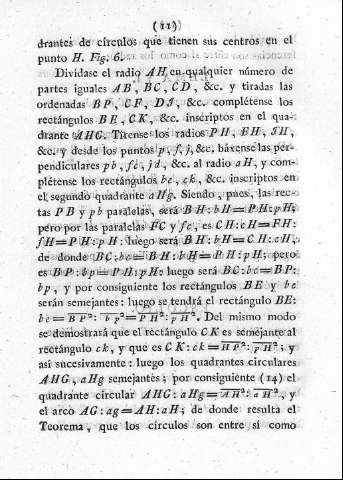 (11)
drantes de círculos que tienen sus centros en el
punto H. Fig. 6.
Dividase el radio AH en qualquier número de
partes iguales AB, BC, CD, &c. y tiradas las
ordenadas BP, CF, DJ, &c. complétense los
rectángulos BE, CK, &c. inscriptos en el qua-
drante AHG. Tírense los radios PH, FH, JH,
&c. y desde los puntos p, f, j, &c, báxense las per-
pendiculares pb, fc, jd, &c. al radio aH, y com-
plétense los rectángulos be, ck, &c. inscriptos en
el segundo quadrante aHg. Siendo, pues, las rec-
tas PB y pb paralelas, será BH:bH=PH:pH;
pero por las paralelas FC y fc, es CH:cH=FH:
fH=PH:pH: luego será BH:bH=CH:cH,
de donde BC:bc=BH:bH=PH:pH; pero
es BP:bp=PH:pH: luego será BC:bc=BP:
bp, y por consiguiente los rectángulos BE y be
serán semejantes: luego se tendrá el rectángulo BE:
be=BP²: bp²=PH²:pH². Del mismo modo
se demostrará que el rectángulo CK es semejante al
rectángulo ck, y que es CK:ck=HP²:pH²; y
así sucesivamente: luego los quadrantes circulares
AHG, aHg semejantes; por consiguiente (14) el
quadrante circular AHG:aHg=AH²:aH², y
el arco AG:ag=AH:aH; de donde resulta el
Teorema, que los círculos son entre sí como